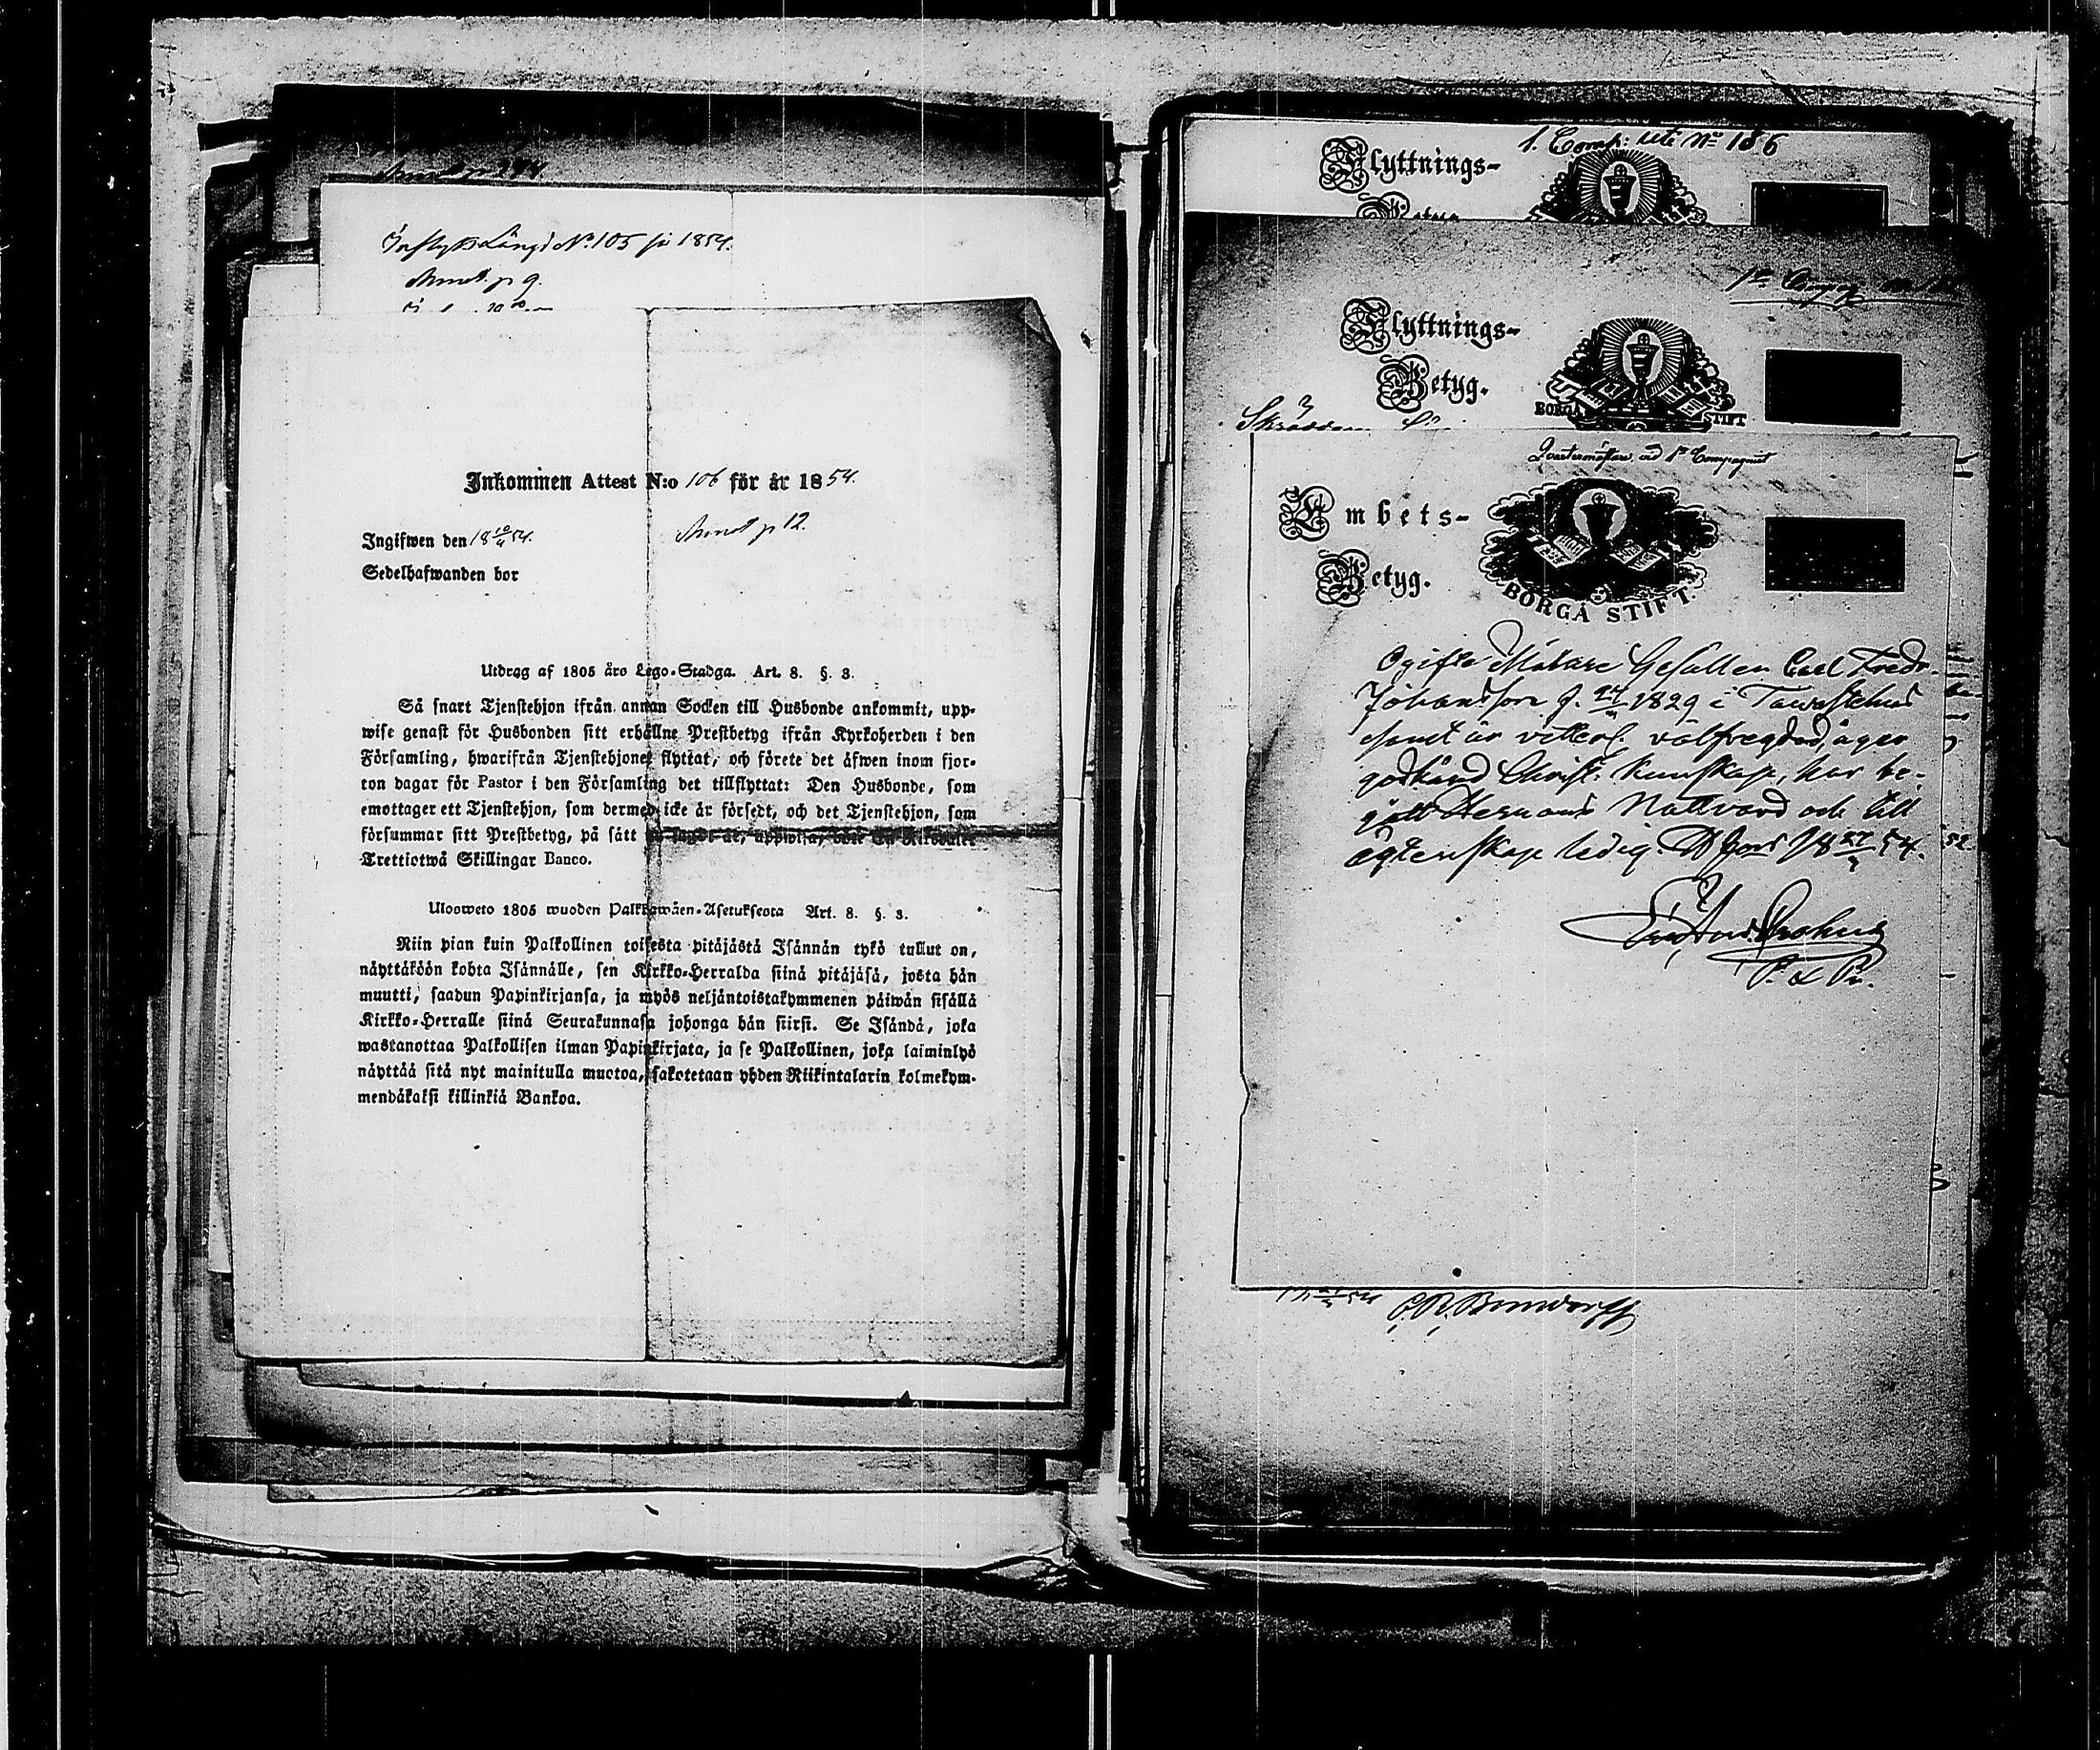 Inflytts Längd No. 105 för 1854.
p 9.
Inkommen Attest N:o 106 för år 1854.
p 12.
Ingifwen den 18 10/4 54.
Sedelhafwanden bor
Utdrag af 1805 års Lego-Stadga. Art. 8. §. 3.
Så snart Tjenstehjon ifrån annan Socken till Husbonde ankommit, upp-
wise genast för Husbonden sitt erhållne Prestbetyg ifrån Kyrkoherden i den
Församling, hwarifrån Tjenstehjonet flyttat, och förete det äfwen inom fjor-
ton dagar för Pastor i den Församling det tillflyttat: Den Husbonde, som
emottager ett Tjenstehjon, som dermed icke är försedt, och det Tjenstehjon, som
försummar sitt Prestbetyg, på sätt
Trettiotwå Skillingar Banco.
Ulosweto 1805 wuoden Palkkawäen-Asetuksesta Art. 8. §. 3.
Niin pian kuin Palkollinen toisesta pitäjästä Isännän tykö tullut on,
näyttäköön kohta Isännälle, sen Kirkko-Herralda siinä pitäjäsä, josta hän
muutti, saadun Papinkirjansa, ja myös neljäntoistakymmenen päiwän sisällä
Kirkko-Herralle siinä Seurakunnasa johonga hän siirsi. Se Isändä, joka
wastanottaa Palkollisen ilman Papinkirjata, ja se Palkollinen, joka laiminlyö
näyttää sitä nyt mainitulla muotoa, sakotetaan yhden Riikintalarin kolmekym-
mendäkaksi killinkiä Bankoa.
1. Comp: ute No 186
Flyttnings-
Betyg.
Flyttnings-
Betyg.
BORGÅ STIFT
Skräddare
Qvartermästare vid 1e Compagniet
Embets-
Betyg.
BORGÅ STIFT.
Ogifte Målare Gesällen Carl Fredr.
Johansson f. 1829 i Tawastehus
samt är vitterl. välfregdad, äger
godkänd Christ. kunskap, har be-
gått Herrans Nattvard och till
ägtenskap ledig.